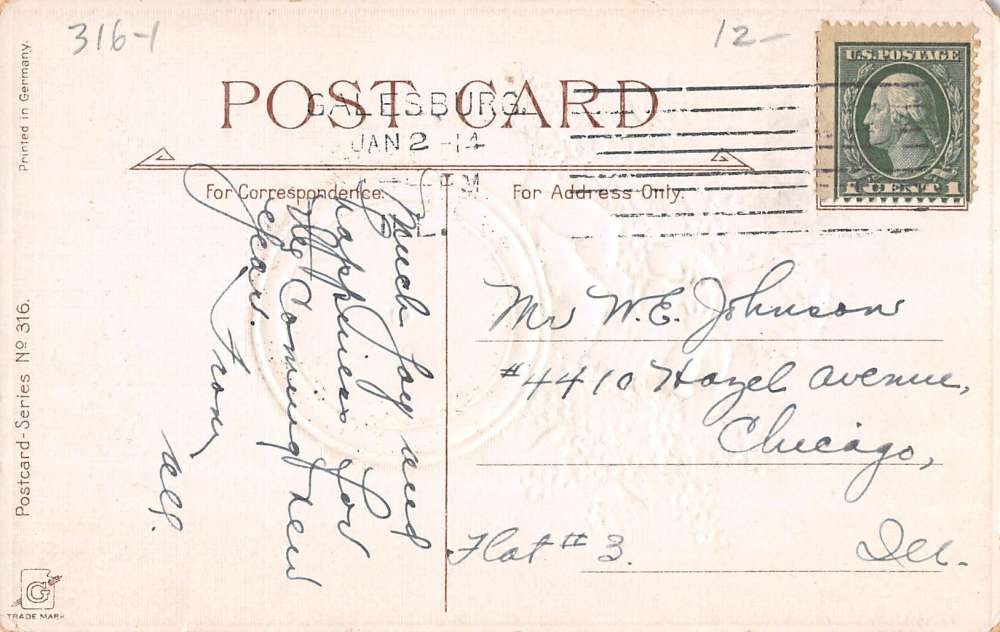 316-1
12-
U.S. POSTAGE
1 CENT 1
POST CARD
GALESBURG,
JAN 2 -14
M
ILL.
For Correspondence.
For Address Only.
Much Joy and
happiness for
the Coming New
Year.
From,
all.
Mr W. E. Johnson
#4410 Hazel Avenue,
Chicago,
Flat #3. Ill.
Printed in Germany.
Postcard-Series Nº 316.
G
TRADE MARK